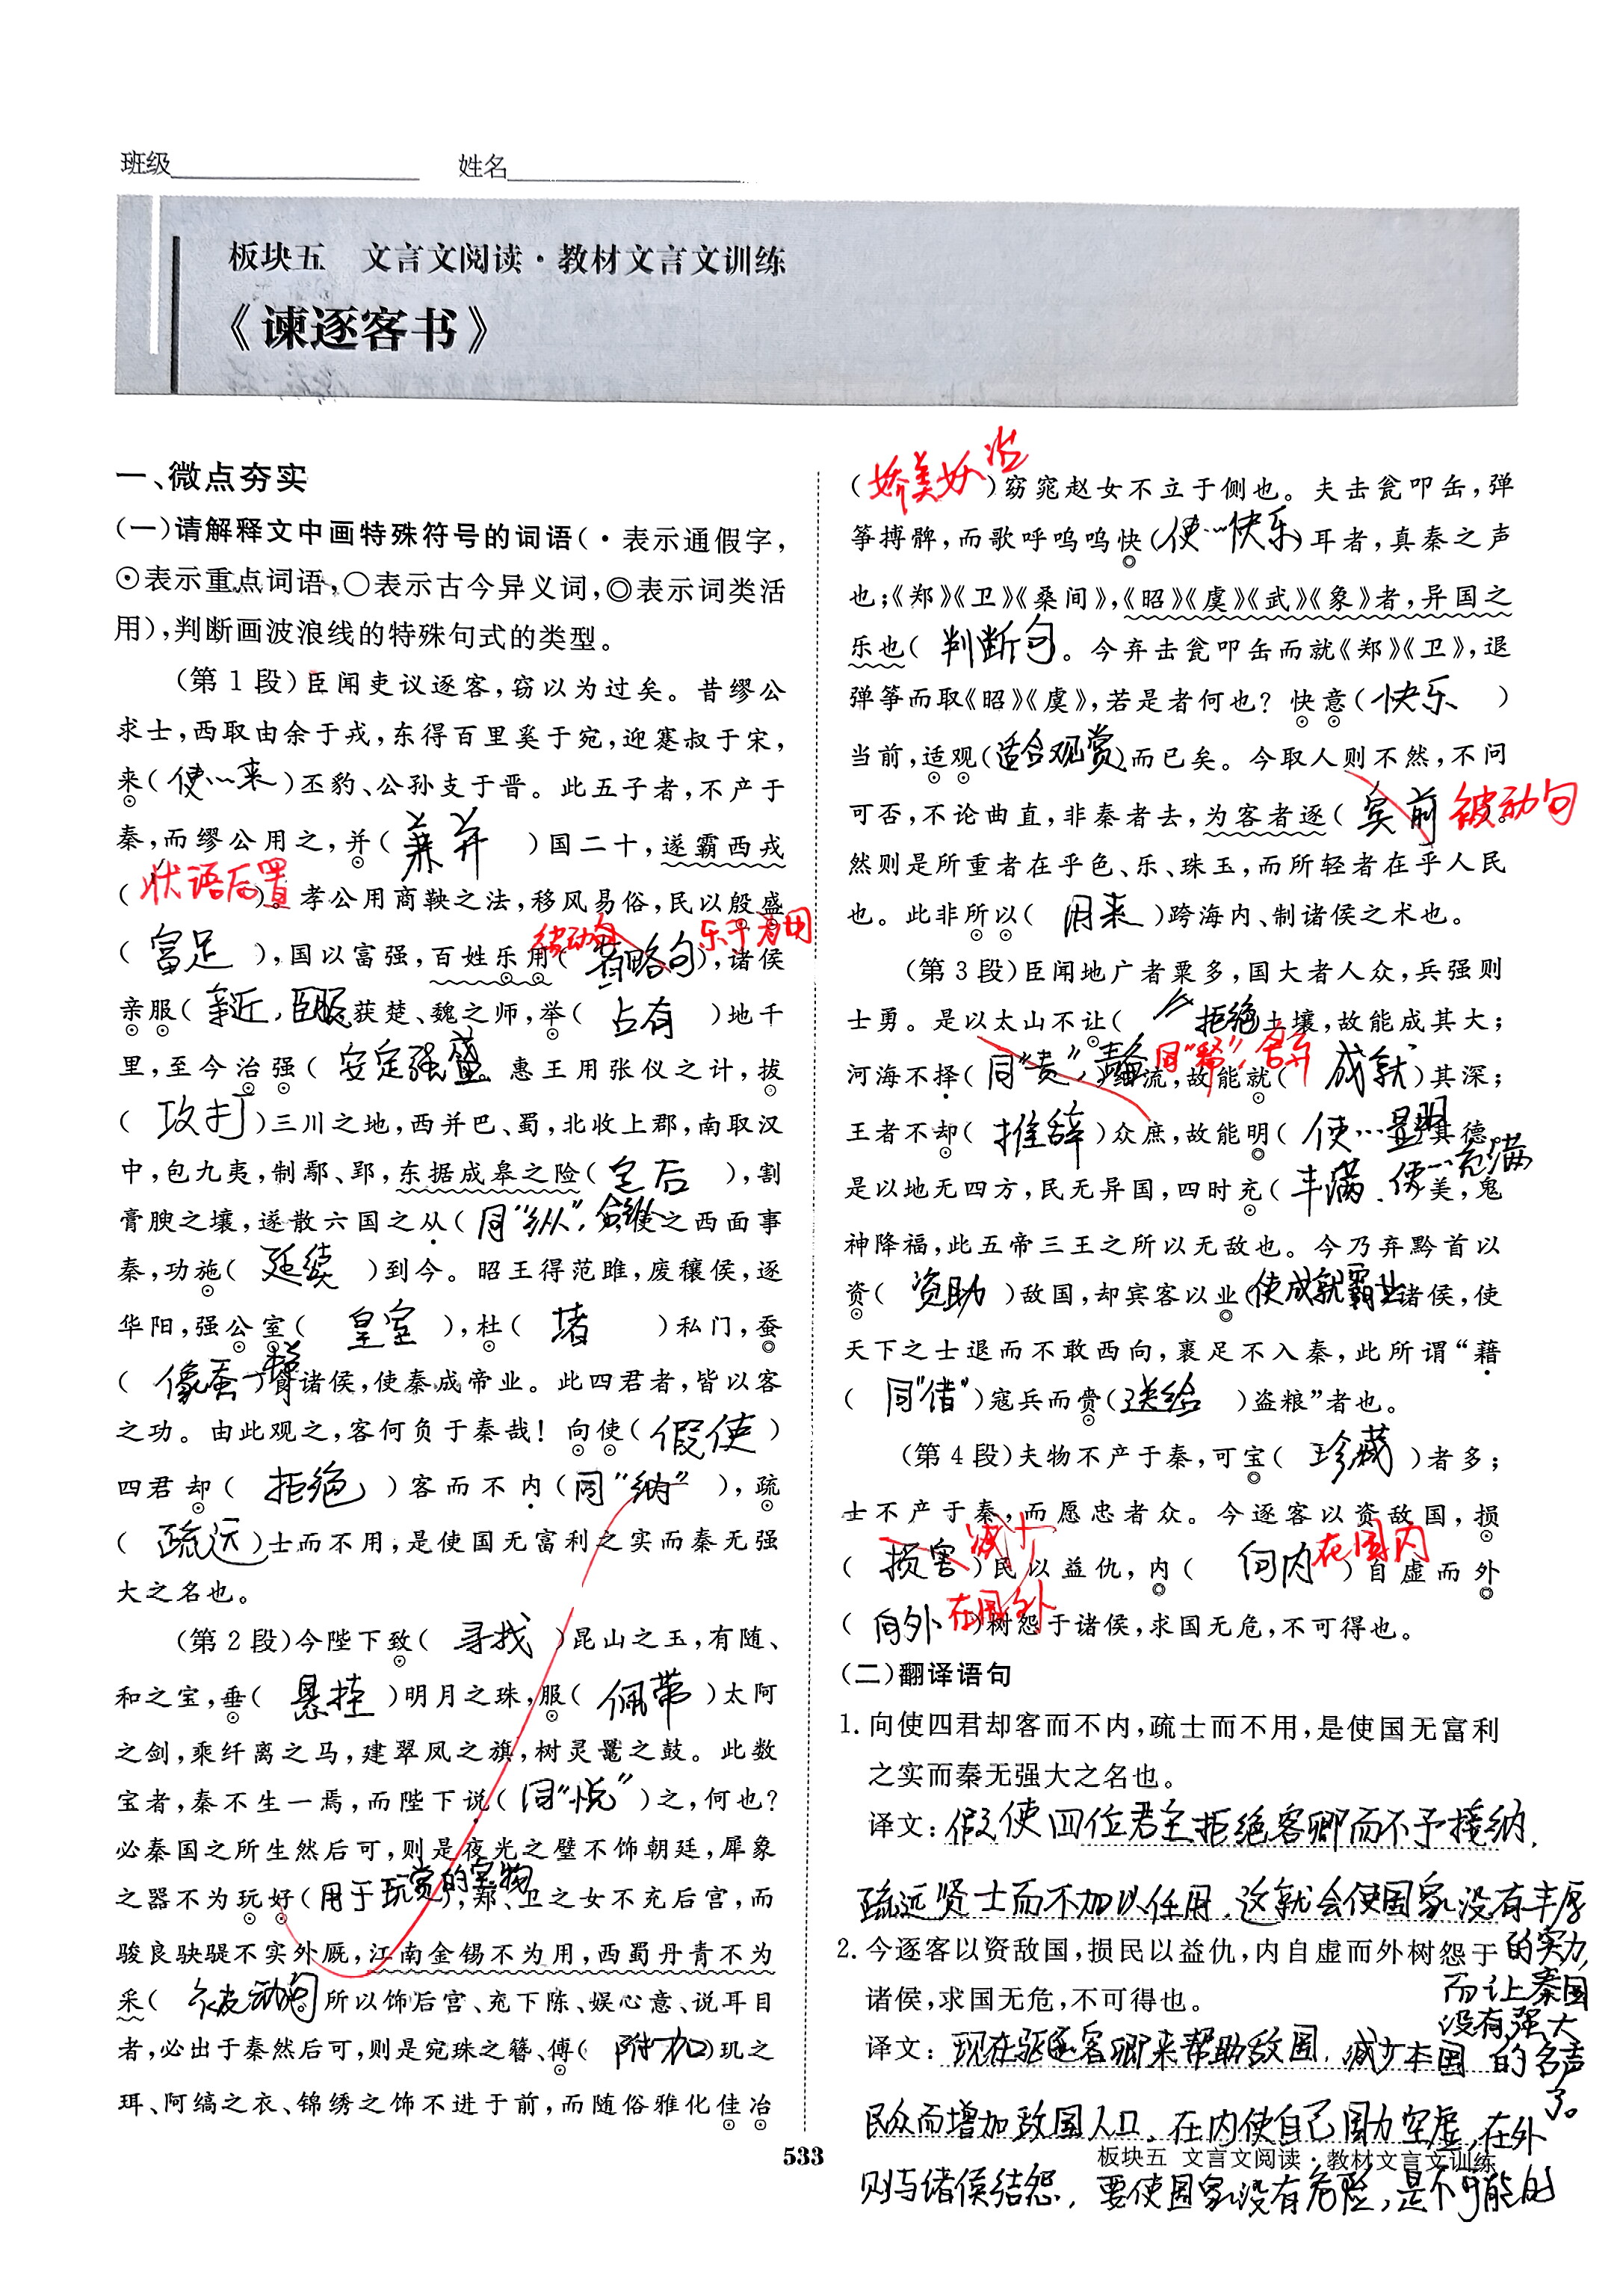 班级 姓名
板块五 文言文阅读·教材文言文训练
《谏逐客书》
一、微点夯实
(一)请解释文中画特殊符号的词语(·表示通假字,
⊙表示重点词语,○表示古今异义词,◎表示词类活
用),判断画波浪线的特殊句式的类型。
(第1段)臣闻吏议逐客,窃以为过矣。昔缪公
求士,西取由余于戎,东得百里奚于宛,迎蹇叔于宋,
来(使…来)丕豹、公孙支于晋。此五子者,不产于
秦,而缪公用之,并(兼并)国二十,遂霸西戎
(状语后置)。孝公用商鞅之法,移风易俗,民以殷盛
(富足),国以富强,百姓乐用(省略句 被动句 乐于为用),诸侯
亲服(亲近,臣服)获楚、魏之师,举(占有)地千
里,至今治强(安定强盛。惠王用张仪之计,拔
(攻打)三川之地,西并巴、蜀,北收上郡,南取汉
中,包九夷,制鄢、郢,东据成皋之险(定后),割
膏腴之壤,遂散六国之从(同“纵”,合纵使之西面事
秦,功施(延续)到今。昭王得范雎,废穰侯,逐
华阳,强公室(皇室),杜(堵)私门,蚕
(像蚕一样)食诸侯,使秦成帝业。此四君者,皆以客
之功。由此观之,客何负于秦哉!向使(假使)
四君却(拒绝)客而不内(同“纳”),疏
(疏远)士而不用,是使国无富利之实而秦无强
大之名也。
(第2段)今陛下致(寻找)昆山之玉,有随、
和之宝,垂(悬挂)明月之珠,服(佩带)太阿
之剑,乘纤离之马,建翠凤之旗,树灵鼍之鼓。此数
宝者,秦不生一焉,而陛下说(同“悦”)之,何也?
必秦国之所生然后可,则是夜光之璧不饰朝廷,犀象
之器不为玩好(用于玩赏的宝物),郑、卫之女不充后宫,而
骏良𫘝𫘨不实外厩,江南金锡不为用,西蜀丹青不为
采(被动句)所以饰后宫、充下陈、娱心意、说耳目
者,必出于秦然后可,则是宛珠之簪、傅(附加)玑之
珥、阿缟之衣、锦绣之饰不进于前,而随俗雅化佳冶
(娇美妖冶)窈窕赵女不立于侧也。夫击瓮叩缶,弹
筝搏髀,而歌呼呜呜快(使…快乐)耳者,真秦之声
也;《郑》《卫》《桑间》,《昭》《虞》《武》《象》者,异国之
乐也(判断句。今弃击瓮叩缶而就《郑》《卫》,退
弹筝而取《昭》《虞》,若是者何也?快意(快乐)
当前,适观(适合观赏)而已矣。今取人则不然,不问
可否,不论曲直,非秦者去,为客者逐(宾前 被动句)。
然则是所重者在乎色、乐、珠玉,而所轻者在乎人民
也。此非所以(用来)跨海内、制诸侯之术也。
(第3段)臣闻地广者粟多,国大者人众,兵强则
士勇。是以太山不让(拒绝土壤,故能成其大;
河海不择( 同“释”,舍弃 细流,故能就(成就)其深;
王者不却(推辞)众庶,故能明(使…显明其德。
是以地无四方,民无异国,四时充(丰满、使…充满美,鬼
神降福,此五帝三王之所以无敌也。今乃弃黔首以
资(资助)敌国,却宾客以业(使成就霸业诸侯,使
天下之士退而不敢西向,裹足不入秦,此所谓“藉
(同“借”)寇兵而赍(送给)盗粮”者也。
(第4段)夫物不产于秦,可宝(珍藏)者多;
士不产于秦,而愿忠者众。今逐客以资敌国,损
(损害 减少)民以益仇,内(向内 在国内)自虚而外
(向外 在国外)树怨于诸侯,求国无危,不可得也。
(二)翻译语句
1.向使四君却客而不内,疏士而不用,是使国无富利
之实而秦无强大之名也。
译文:假使四位君主拒绝客卿而不予接纳,
疏远贤士而不加以任用,这就会使国家没有丰厚
的实力,
而让秦国
没有强大
的名声
了。
2.今逐客以资敌国,损民以益仇,内自虚而外树怨于
诸侯,求国无危,不可得也。
译文:现在驱逐客卿来帮助敌国,减少本国
民众而增加敌国人口,在内使自己国力空虚,在外
则与诸侯结怨,要使国家没有危险,是不可能的
533
板块五 文言文阅读·教材文言文训练